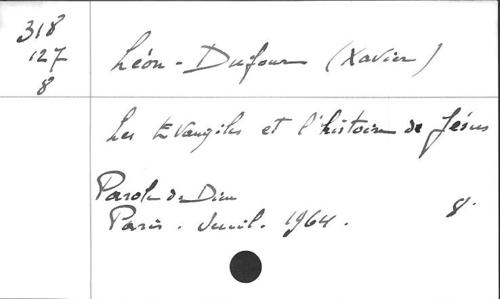 318
127
8
Léon-Dufour (Xavier)
Les Evangiles et l'histoire de Jésus
Parole de Dieu
Paris. Seuil. 1964. 8.